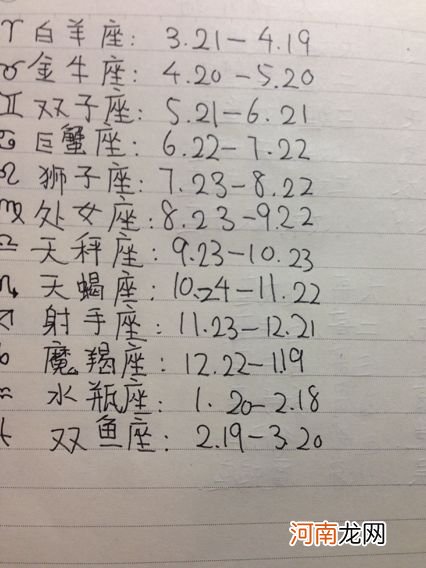 ♈ 白羊座: 3.21-4.19
♉ 金牛座: 4.20-5.20
♊ 双子座: 5.21-6.21
♋ 巨蟹座: 6.22-7.22
♌ 狮子座: 7.23-8.22
♍ 处女座: 8.23-9.22
♎ 天秤座: 9.23-10.23
♏ 天蝎座: 10.24-11.22
♐ 射手座: 11.23-12.21
魔羯座: 12.22-1.19
♒ 水瓶座: 1.20-2.18
双鱼座: 2.19-3.20
河南龙网